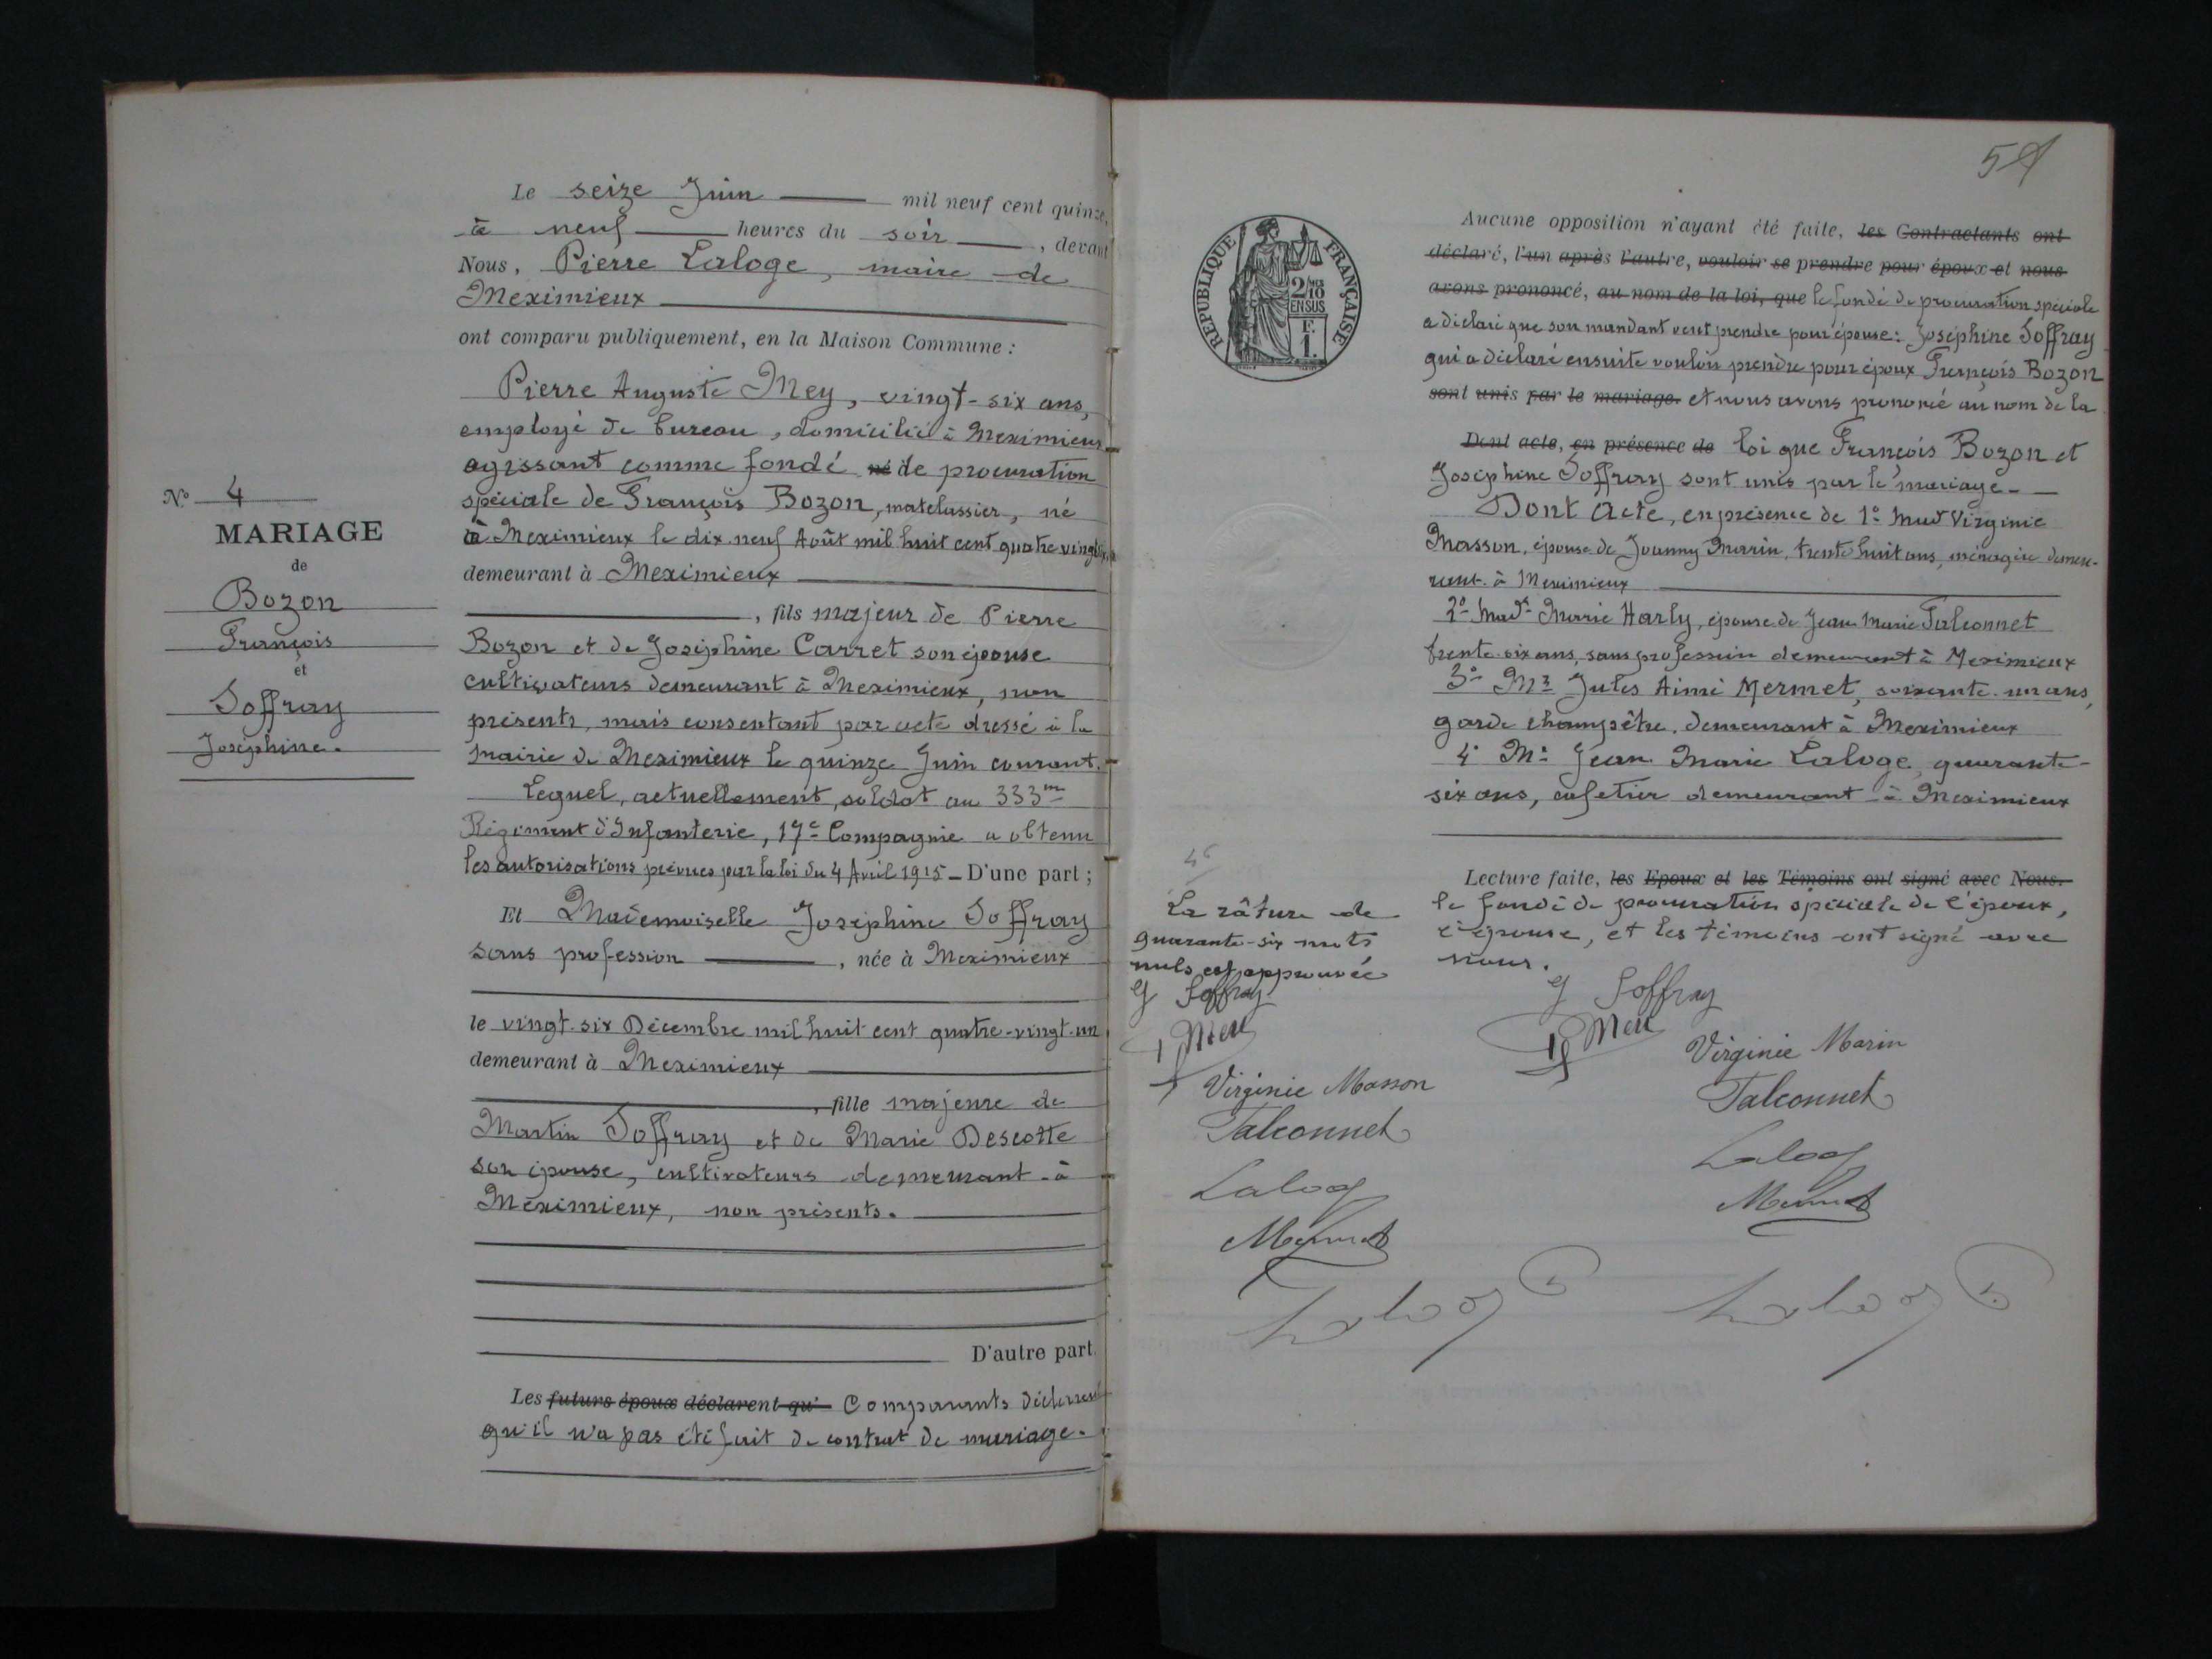 N° 4
MARIAGE
de
Bozon
François
et
Joffray
Joséphine.
Le seize Juin mil neuf cent quinze,
à neuf heures du soir, devant
Nous, Pierre Laloge, maire de
Meximieux
ont comparu publiquement, en la Maison Commune :
Pierre Auguste Mey, vingt-six ans,
employé de bureau, domicilié à Meximieux
agissant comme fondé né de procuration
spéciale de François Bozon, matelassier, né
à Meximieux le dix neuf Août mil huit cent quatre vingt
demeurant à Meximieux
, fils majeur de Pierre
Bozon et de Joséphine Carret son épouse
cultivateurs demeurant à Meximieux, non
présents, mais consentant par acte dressé à la
Mairie de Meximieux le quinze Juin courant.
Lequel, actuellement, soldat au 333me
Régiment d'Infanterie, 17e Compagnie a obtenu
les autorisations prévues par la loi du 4 Avril 1915 – D'une part ;
Et Mademoiselle Joséphine Joffray
sans profession, née à Meximieux
le vingt-six Décembre mil huit cent quatre-vingt-un
demeurant à Meximieux
, fille majeure de
Martin Joffray et de Marie Descotte
son épouse, cultivateurs demeurant à
Meximieux, non présents.
D'autre part.
Les futurs époux déclarent qu' Comparants déclarent
qu'il n'a pas été fait de contrat de mariage.
REPUBLIQUE FRANÇAISE
2/10
EN SUS
F.
1.
Aucune opposition n'ayant été faite, les Contractants ont
déclaré, l'un après l'autre, vouloir se prendre pour époux et nous
avons prononcé, au nom de la loi, que le fondé de procuration spéciale
a déclaré que son mandant veut prendre pour épouse : Joséphine Joffray
qui a déclaré ensuite vouloir prendre pour époux François Bozon
sont unis par le mariage. et nous avons prononcé au nom de la
Dont acte, en présence de loi que François Bozon et
Joséphine Joffray sont unis par le mariage.
Dont Acte, en présence de 1° Mad Virginie
Masson, épouse de Joanny Marin, trente huit ans, ménagère demeu-
rant à Meximieux
2° Made Marie Harly, épouse de Jean Marie Falconnet
trente-six ans, sans profession demeurant à Meximieux
3° Mr Jules Aimé Mermet, soixante-un ans,
garde champêtre, demeurant à Meximieux
4° Mr Jean Marie Laloge, quarante-
six ans, cafetier demeurant à Meximieux
Lecture faite, les Epoux et les Témoins ont signé avec Nous.
le fondé de procuration spéciale de l'époux,
l'épouse, et les témoins ont signé avec
nous.
J Joffray
Virginie Marin
Falconnet
Laloge
Mermet
La râture de
quarante-six mots
nuls est approuvée
J Joffray
Virginie Masson
Falconnet
Laloge
Mermet